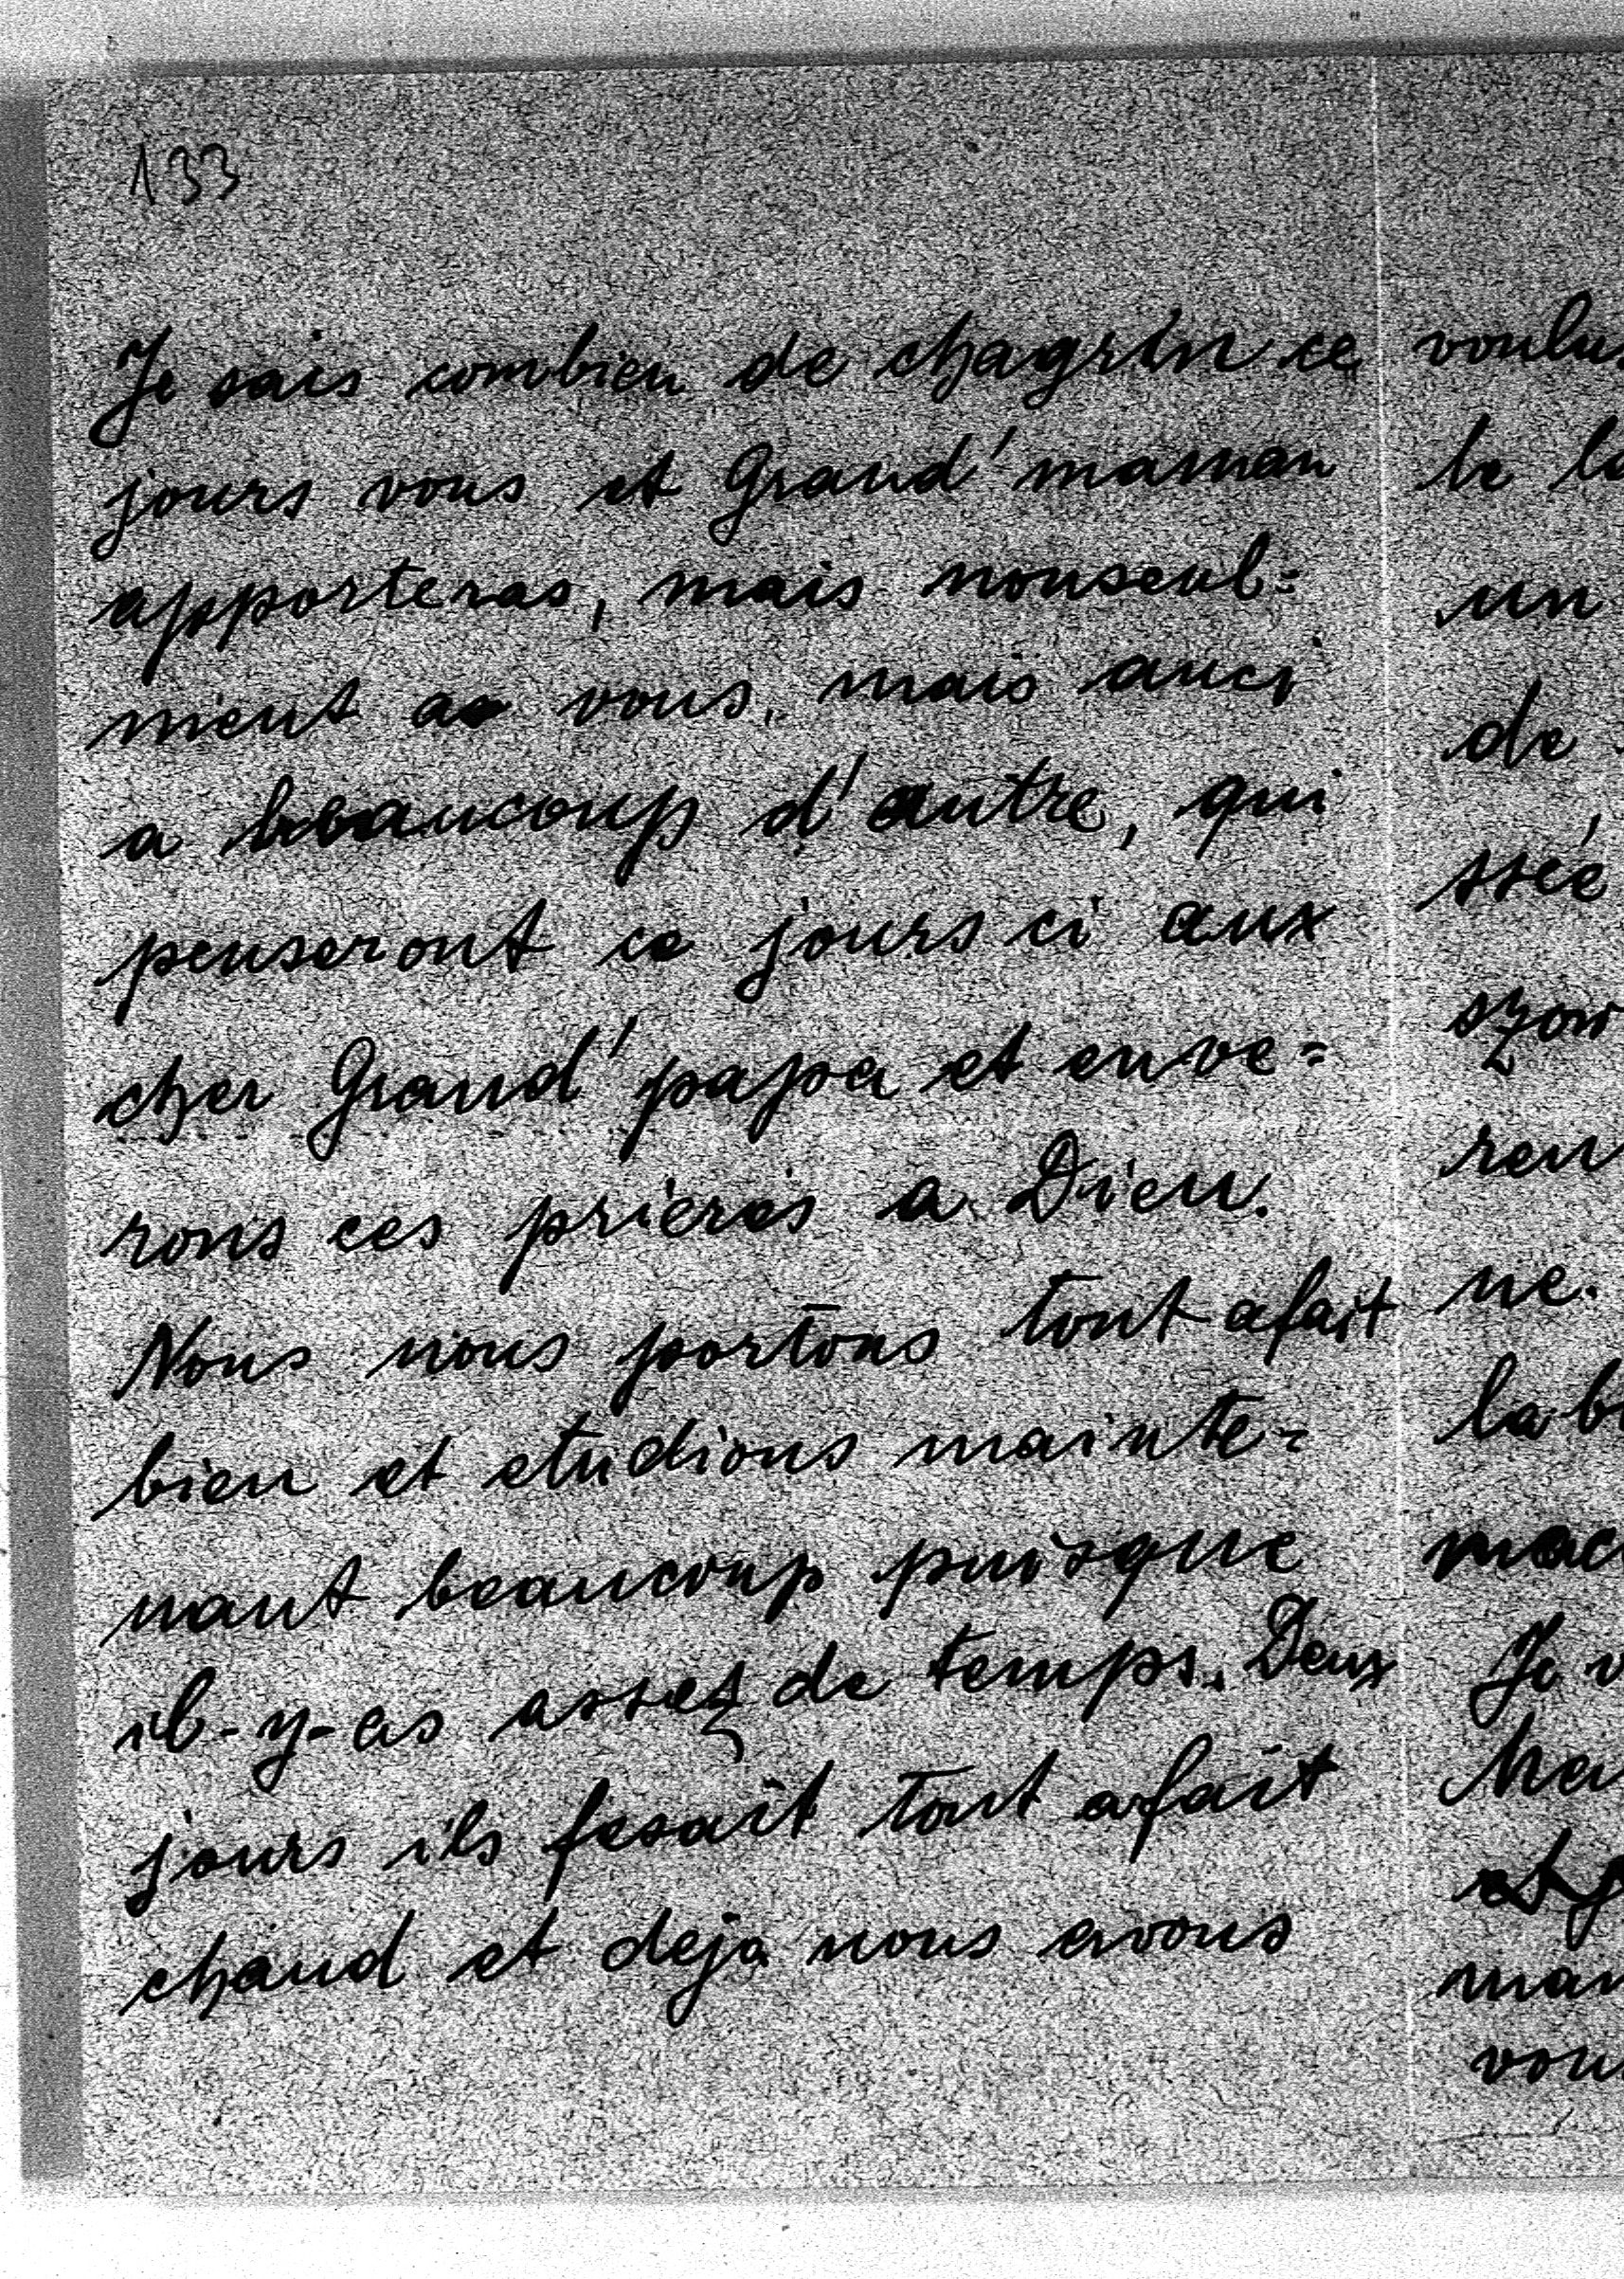 133
Je sais combien de chagrin ce
jours vous et Grand'maman
apporteras, mais nonseul=
ment a vous, mais auci
a beaucoup d'autre, qui
penseront ce jours ci aux
cher Grand'papa et enve=
rons ces prières a Dieu.
Nous nous portons tout afait
bien et etudions mainte=
nant beaucoup puisque
il-y-as assez de temps. Deux
jours ils fesait tout afait
chaud et deja nous avons
voulu
le
un
de
ssée
ren
ne.
la
Je
et
vou